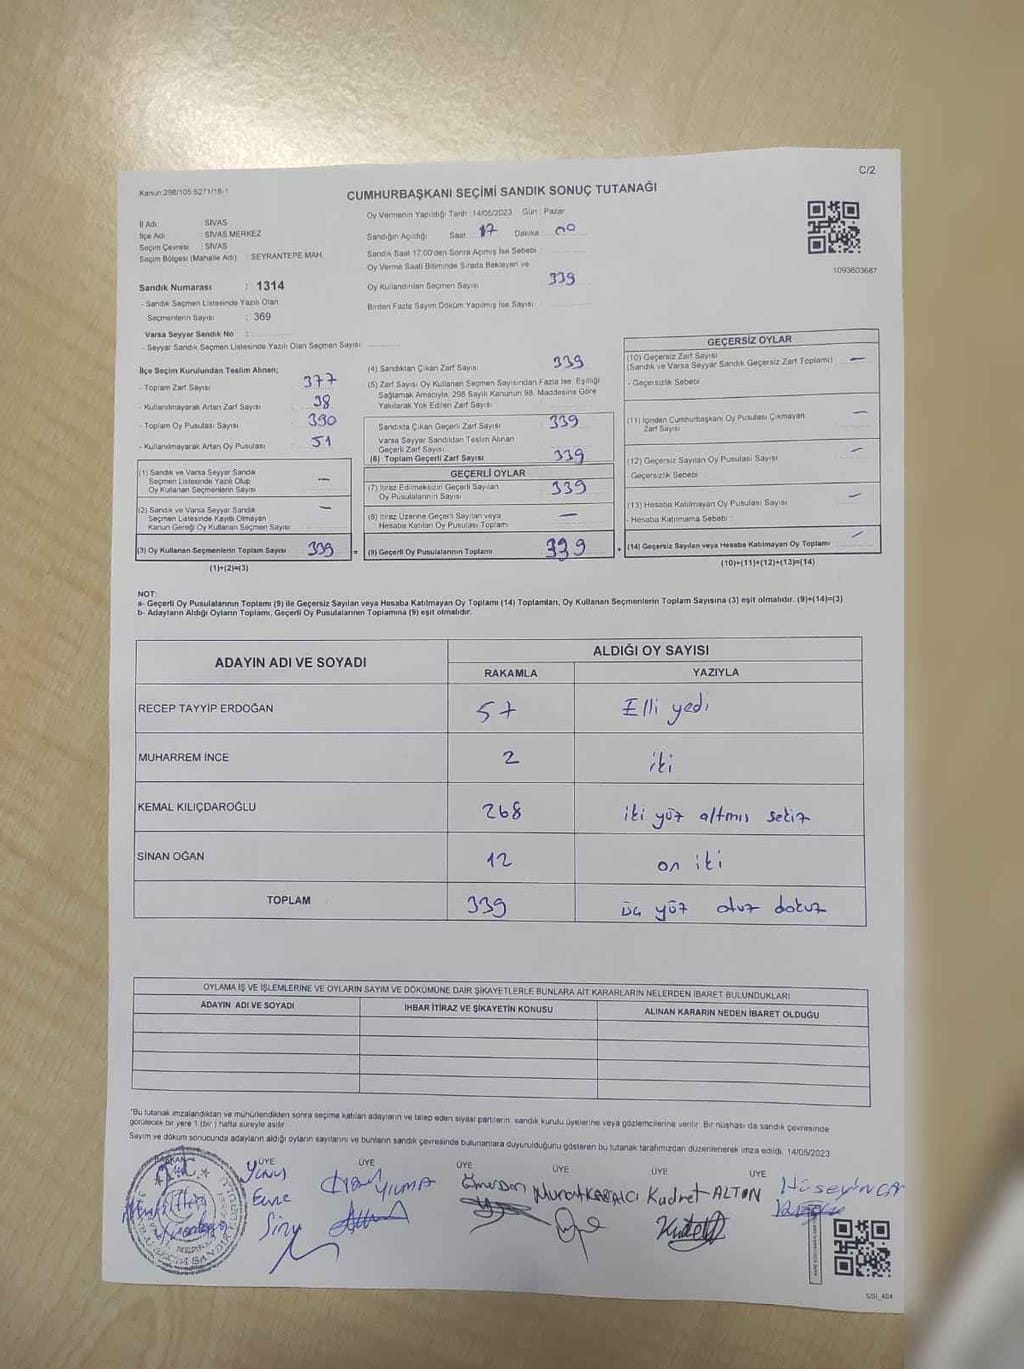 C/2
Kanun:298/105.6271/18-1
CUMHURBAŞKANI SEÇİMİ SANDIK SONUÇ TUTANAĞI
İl Adı : SİVAS
İlçe Adı : SİVAS MERKEZ
Seçim Çevresi : SİVAS
Seçim Bölgesi (Mahalle Adı) : SEYRANTEPE MAH.
Oy Vermenin Yapıldığı Tarih :14/05/2023 Gün : Pazar
Sandığın Açıldığı Saat 17 Dakika 00
Sandık Saat 17.00'den Sonra Açılmış İse Sebebi
Oy Verme Saati Bitiminde Sırada Bekleyen ve
Oy Kullandırılan Seçmen Sayısı 339
Birden Fazla Sayım Döküm Yapılmış İse Sayısı
1093603687
Sandık Numarası : 1314
- Sandık Seçmen Listesinde Yazılı Olan
Seçmenlerin Sayısı : 369
Varsa Seyyar Sandık No :
- Seyyar Sandık Seçmen Listesinde Yazılı Olan Seçmen Sayısı
İlçe Seçim Kurulundan Teslim Alınan;
- Toplam Zarf Sayısı 377
- Kullanılmayarak Artan Zarf Sayısı 38
- Toplam Oy Pusulası Sayısı 390
- Kullanılmayarak Artan Oy Pusulası 51
(1) Sandık ve Varsa Seyyar Sandık
Seçmen Listesinde Yazılı Olup
Oy Kullanan Seçmenlerin Sayısı —
(2) Sandık ve Varsa Seyyar Sandık
Seçmen Listesinde Kayıtlı Olmayan
Kanun Gereği Oy Kullanan Seçmen Sayısı —
(3) Oy Kullanan Seçmenlerin Toplam Sayısı 339
(1)+(2)=(3)
(4) Sandıktan Çıkan Zarf Sayısı 339
(5) Zarf Sayısı Oy Kullanan Seçmen Sayısından Fazla İse, Eşitliği
Sağlamak Amacıyla, 298 Sayılı Kanunun 98. Maddesine Göre
Yakılarak Yok Edilen Zarf Sayısı
Sandıkta Çıkan Geçerli Zarf Sayısı 339
Varsa Seyyar Sandıktan Teslim Alınan
Geçerli Zarf Sayısı
(6) Toplam Geçerli Zarf Sayısı 339
GEÇERLİ OYLAR
(7) İtiraz Edilmeksizin Geçerli Sayılan
Oy Pusulalarının Sayısı 339
(8) İtiraz Üzerine Geçerli Sayılan veya
Hesaba Katılan Oy Pusulası Toplamı —
= (9) Geçerli Oy Pusulalarının Toplamı 339
GEÇERSİZ OYLAR
(10) Geçersiz Zarf Sayısı
(Sandık ve Varsa Seyyar Sandık Geçersiz Zarf Toplamı) —
- Geçersizlik Sebebi
(11) İçinden Cumhurbaşkanı Oy Pusulası Çıkmayan
Zarf Sayısı —
(12) Geçersiz Sayılan Oy Pusulası Sayısı —
Geçersizlik Sebebi
(13) Hesaba Katılmayan Oy Pusulası Sayısı —
- Hesaba Katılmama Sebebi
+ (14) Geçersiz Sayılan veya Hesaba Katılmayan Oy Toplamı —
(10)+(11)+(12)+(13)=(14)
NOT:
a- Geçerli Oy Pusulalarının Toplamı (9) ile Geçersiz Sayılan veya Hesaba Katılmayan Oy Toplamı (14) Toplamları, Oy Kullanan Seçmenlerin Toplam Sayısına (3) eşit olmalıdır. (9)+(14)=(3)
b- Adayların Aldığı Oyların Toplamı, Geçerli Oy Pusulalarının Toplamına (9) eşit olmalıdır.
ADAYIN ADI VE SOYADI ALDIĞI OY SAYISI
RAKAMLA YAZIYLA
RECEP TAYYİP ERDOĞAN 57 Elli yedi
MUHARREM İNCE 2 iki
KEMAL KILIÇDAROĞLU 268 iki yüz altmış sekiz
SİNAN OĞAN 12 on iki
TOPLAM 339 üç yüz otuz dokuz
OYLAMA İŞ VE İŞLEMLERİNE VE OYLARIN SAYIM VE DÖKÜMÜNE DAİR ŞİKAYETLERLE BUNLARA AİT KARARLARIN NELERDEN İBARET BULUNDUKLARI
ADAYIN ADI VE SOYADI İHBAR İTİRAZ VE ŞİKAYETİN KONUSU ALINAN KARARIN NEDEN İBARET OLDUĞU
*Bu tutanak imzalandıktan ve mühürlendikten sonra seçime katılan adayların ve talep eden siyasi partilerin sandık kurulu üyelerine veya gözlemcilerine verilir. Bir nüshası da sandık çevresinde
görülecek bir yere 1 (bir) hafta süreyle asılır
Sayım ve döküm sonucunda adayların aldığı oyların sayılarını ve bunların sandık çevresinde bulunanlara duyurulduğunu gösteren bu tutanak tarafımızdan düzenlenerek imza edildi. 14/05/2023
BAŞKAN ÜYE ÜYE ÜYE ÜYE ÜYE ÜYE
Yunus
Emre
YILMAZ
Murat KARAALCI
Kudret ALTUN
Hüseyin
SSI_464